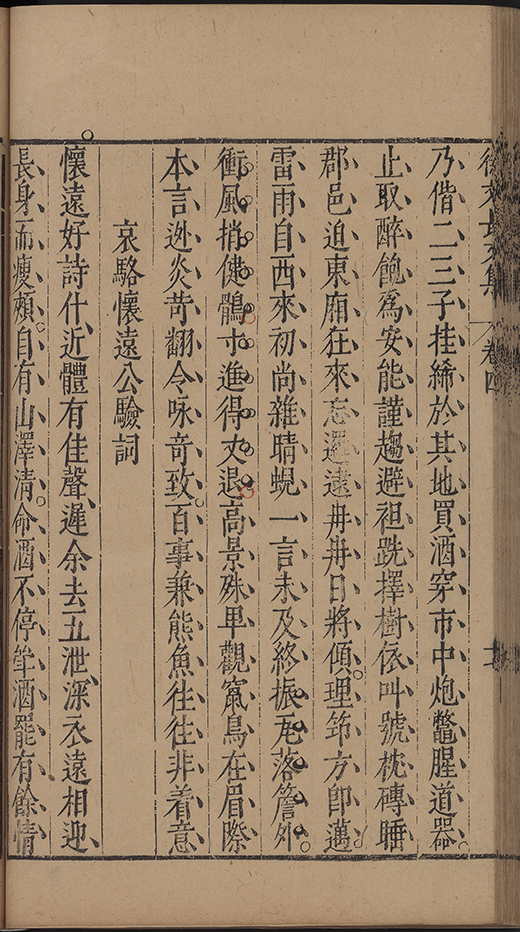 徐文長文集 卷四
乃偕二三子挂絺於其地買酒穿市中炮鼈腥道器
止取醉飽爲安能謹趨避袒跣擇樹依叫號枕磚睡
郡邑迫東廂在來忘邇遠冉冉日將傾理筇方卽邁
雷雨自西來初尚雜晴蜺一言未及終振瓦落簷外
衝風捎健鶻寸進得丈退高景殊早觀窵鳥在眉際
本言迯炎苛翻令咏竒致百事兼熊魚徃徃非着意
哀駱懷遠公驗詞
懷遠好詩什近體有佳聲遲余去五泄深衣遠相迎
長身而瘦頰自有山澤清命酒不停斚酒罷有餘情